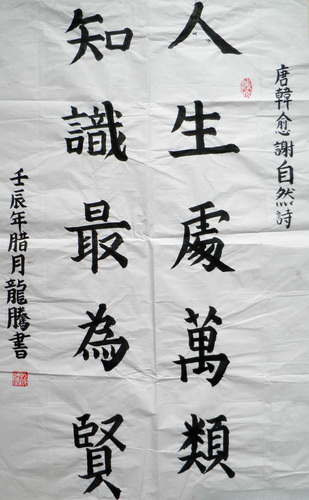 唐韓愈謝自然詩
人生處萬類
知識最為賢
壬辰年腊月龍騰書